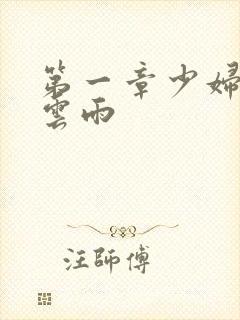 第一章少婦
雲雨
汪師傅